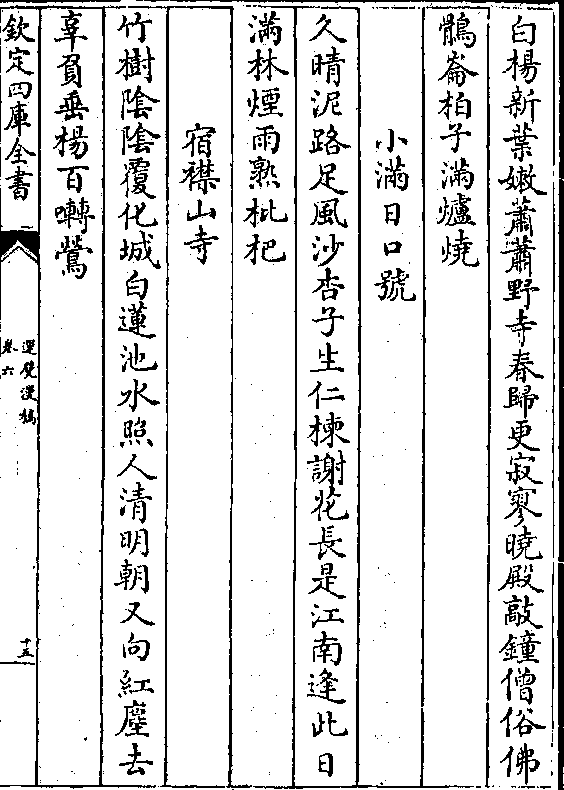 白楊新葉嫩蕭蕭野寺春歸更寂寥曉殿敲鐘僧俗佛
鶻崙柏子滿爐燒
小滿日口號
久晴泥路足風沙杏子生仁楝謝花長是江南逢此日
滿林煙雨熟枇杷
宿襟山寺
竹樹陰陰覆化城白蓮池水照人清明朝又向紅塵去
辜負垂楊百囀鶯
欽定四庫全書
還觉漫稿
卷六
十五